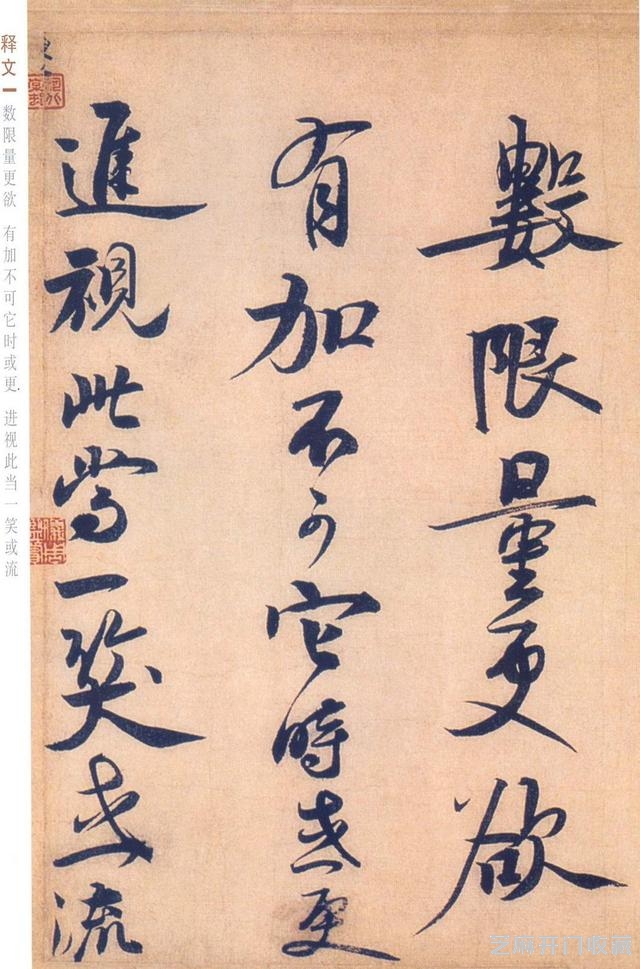 數限量更欲
有加不可它時或更
進視此當一笑或流
释文
数限量更欲 有加不可它时或更. 进视此当一笑或流